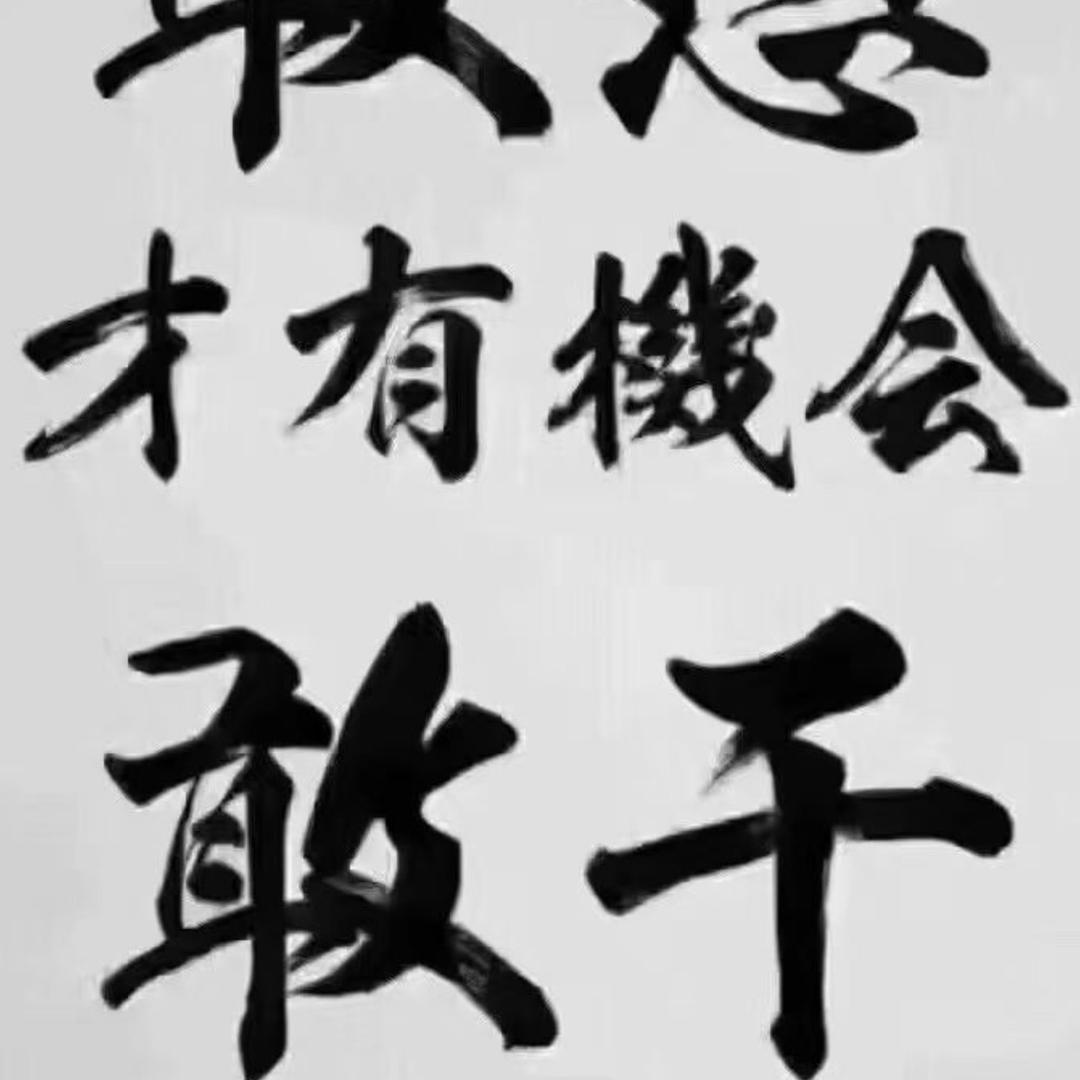 才有機会
敢干